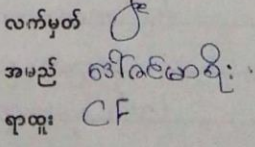 လက်မှတ်
အမည် ဒေါ်ခင်မာရီး
ရာထူး CF